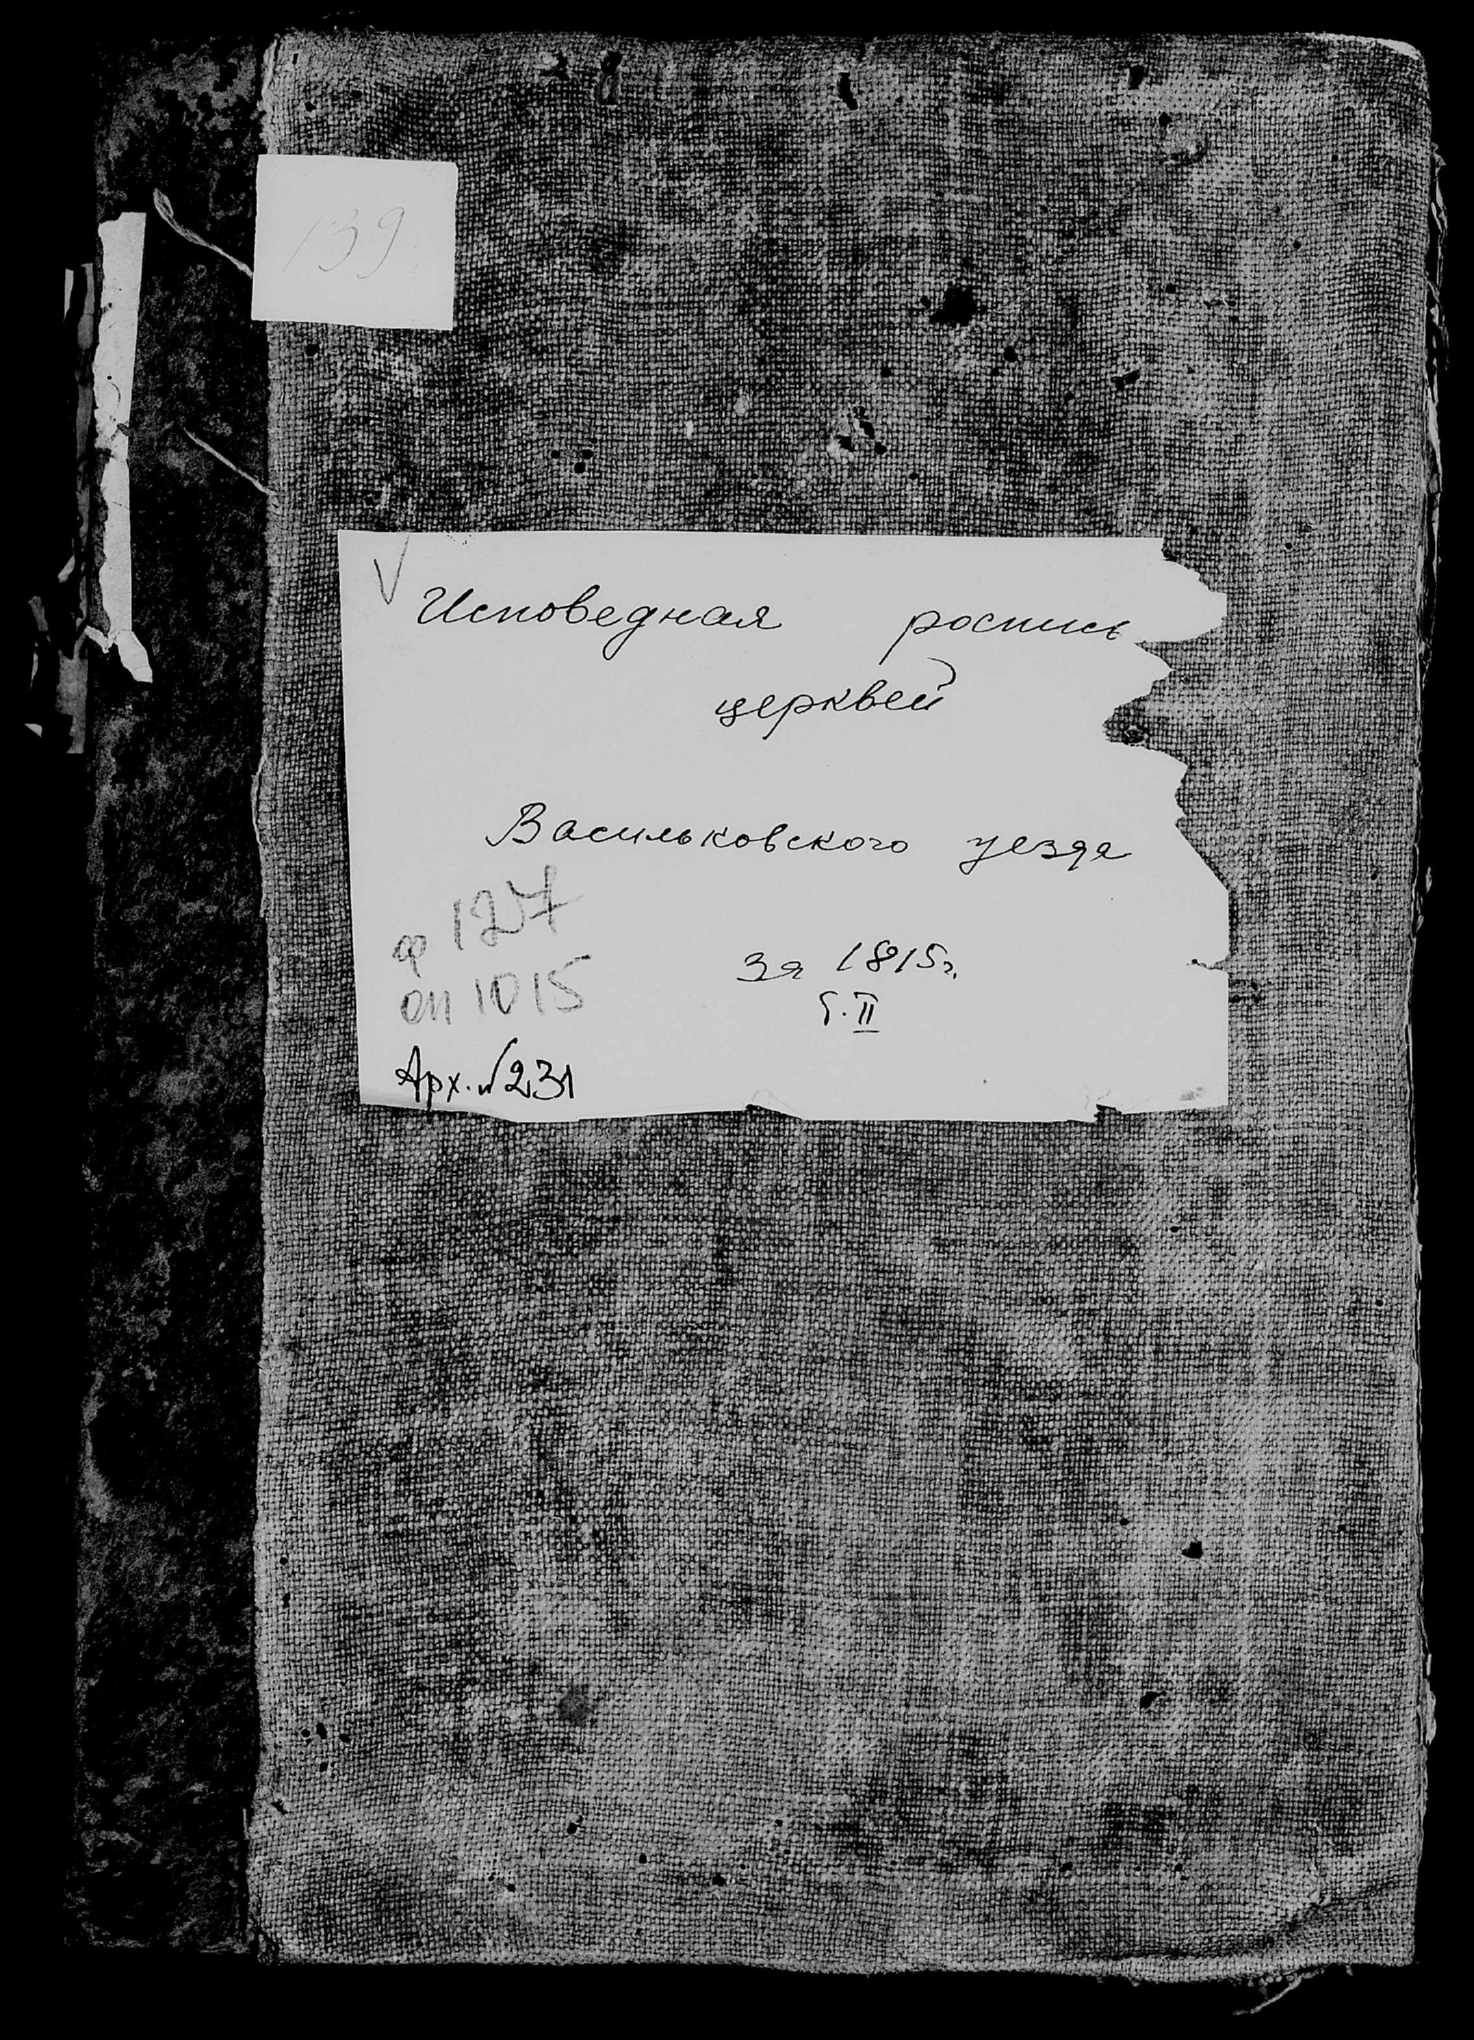 139
Исповедная роспись
церквей
Васильковского уезда
ф 127
за 1815г.
оп 1015
ч. II
Арх. № 231